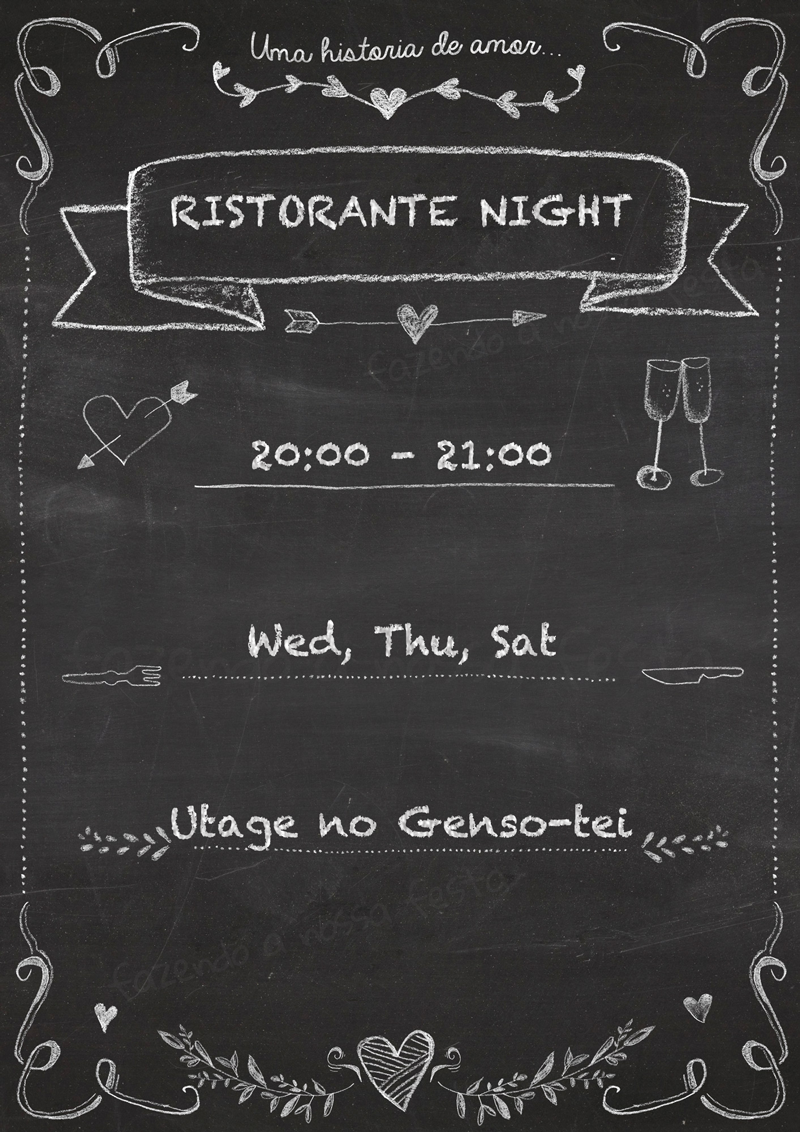 Uma historia de amor...
RISTORANTE NIGHT
fazendo a nossa festa
20:00 - 21:00
Wed, Thu, Sat
Utage no Genso-tei
fazendo a nossa festa